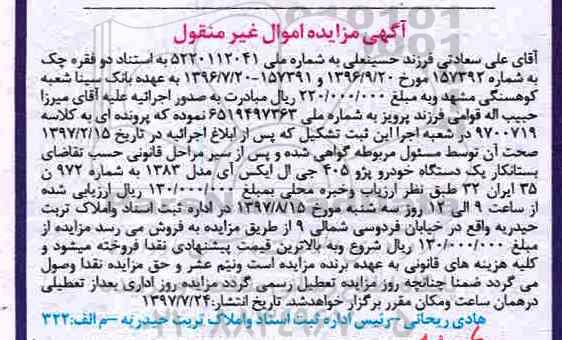 آگهی مزایده اموال غیر منقول
آقای علی سعادتی فرزند حسینعلی به شماره ملی ۵۲۲۰۱۱۲۰۴۱ به استناد دو فقره چک
به شماره ۱۵۷۳۹۲ مورخ ۱۳۹۶/۹/۲۰ و ۱۵۷۳۹۱-۱۳۹۶/۷/۲۰ به عهده بانک سینا شعبه
کوهسنگی مشهد وبه مبلغ ۲۲۰/۰۰۰/۰۰۰ ریال مبادرت به صدور اجرائیه علیه آقای میرزا
حبیب اله قوامی فرزند پرویز به شماره ملی ۶۵۱۹۴۹۷۳۶۳ نموده که پرونده ای به کلاسه
۹۷۰۰۷۱۹ در شعبه اجرا این ثبت تشکیل که پس از ابلاغ اجرائیه در تاریخ ۱۳۹۷/۲/۱۵
صحت آن توسط مسئول مربوطه گواهی شده و پس از سیر مراحل قانونی حسب تقاضای
بستانکار یک دستگاه خودرو پژو ۴۰۵ جی ال ایکس آی مدل ۱۳۸۳ به شماره ۹۷۲ ن
۳۵ ایران ۳۲ طبق نظر ارزیاب وخبره محلی بمبلغ ۱۳۰/۰۰۰/۰۰۰ ریال ارزیابی شده
از ساعت ۹ الی ۱۲ روز سه شنبه مورخ ۱۳۹۷/۸/۱۵ در اداره ثبت اسناد واملاک تربت
حیدریه واقع در خیابان فردوسی شمالی ۹ از طریق مزایده به فروش می رسد مزایده از
مبلغ ۱۳۰/۰۰۰/۰۰۰ ریال شروع وبه بالاترین قیمت پیشنهادی نقدا فروخته میشود و
کلیه هزینه های قانونی به عهده برنده مزایده است ونیم عشر و حق مزایده نقدا وصول
می گردد ضمنا چنانچه روز مزایده تعطیل رسمی گردد مزایده روز اداری بعداز تعطیلی
درهمان ساعت ومکان مقرر برگزار خواهدشد. تاریخ انتشار:۱۳۹۷/۷/۲۴
هادی ریحانی -رئیس اداره ثبت اسناد واملاک تربت حیدریه –م الف:۳۲۲